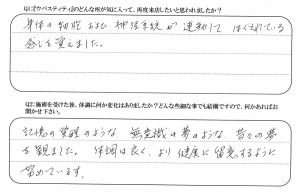 Q1:ウパスティティ®のどんな所が気に入って、再度来店したいと思われましたか？
身体の細胞および神経系統が連動して ほぐれている
感じを覚えました。
Q2:施術を受けた後、体調に何か変化はありましたか？どんな些細な事でも結構ですので、何かあればお
聞かせ下さい。
記憶の覚醒のような 無意識の夢のような、昔々の夢
を観ました。体調は良く、より健康に留意するように
努めています。